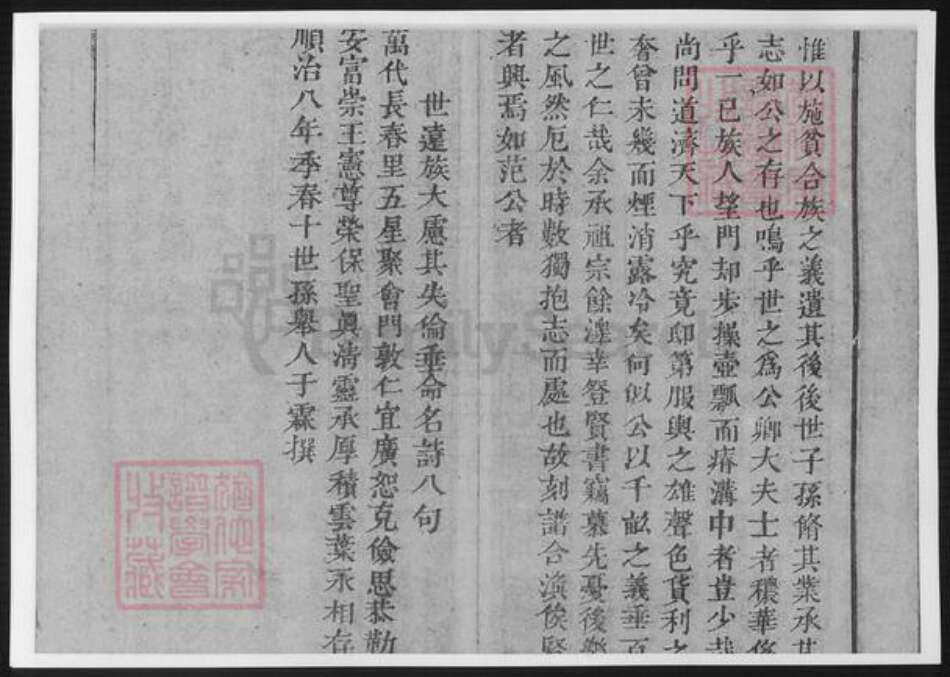 惟以施貧合族之義遺其後後世子孫脩其業承其
志如公之存也嗚乎世之為公卿大夫士者穠華侈
乎一已族人望門却步操壺瓢而瘠溝中者豈少哉
尚問道濟天下乎究竟邸第服輿之雄聲色貨利之
奢曾未幾而煙消露冷矣何似公以千畝之義垂百
世之仁哉余承祖宗餘澤幸登賢書竊慕先憂後樂
之風然厄於時數獨抱志而處也故刻譜合渙俟賢
者興焉如范公者
世遠族大慮其失倫垂命名詩八句
萬代長春里五星聚會門敦仁宜廣恕克儉思恭勤
安富崇王憲尊榮保聖眞淸靈承厚積雲葉永相存
順治八年季春十世孫舉人于霖撰
譜學會
收藏
FamilySearch